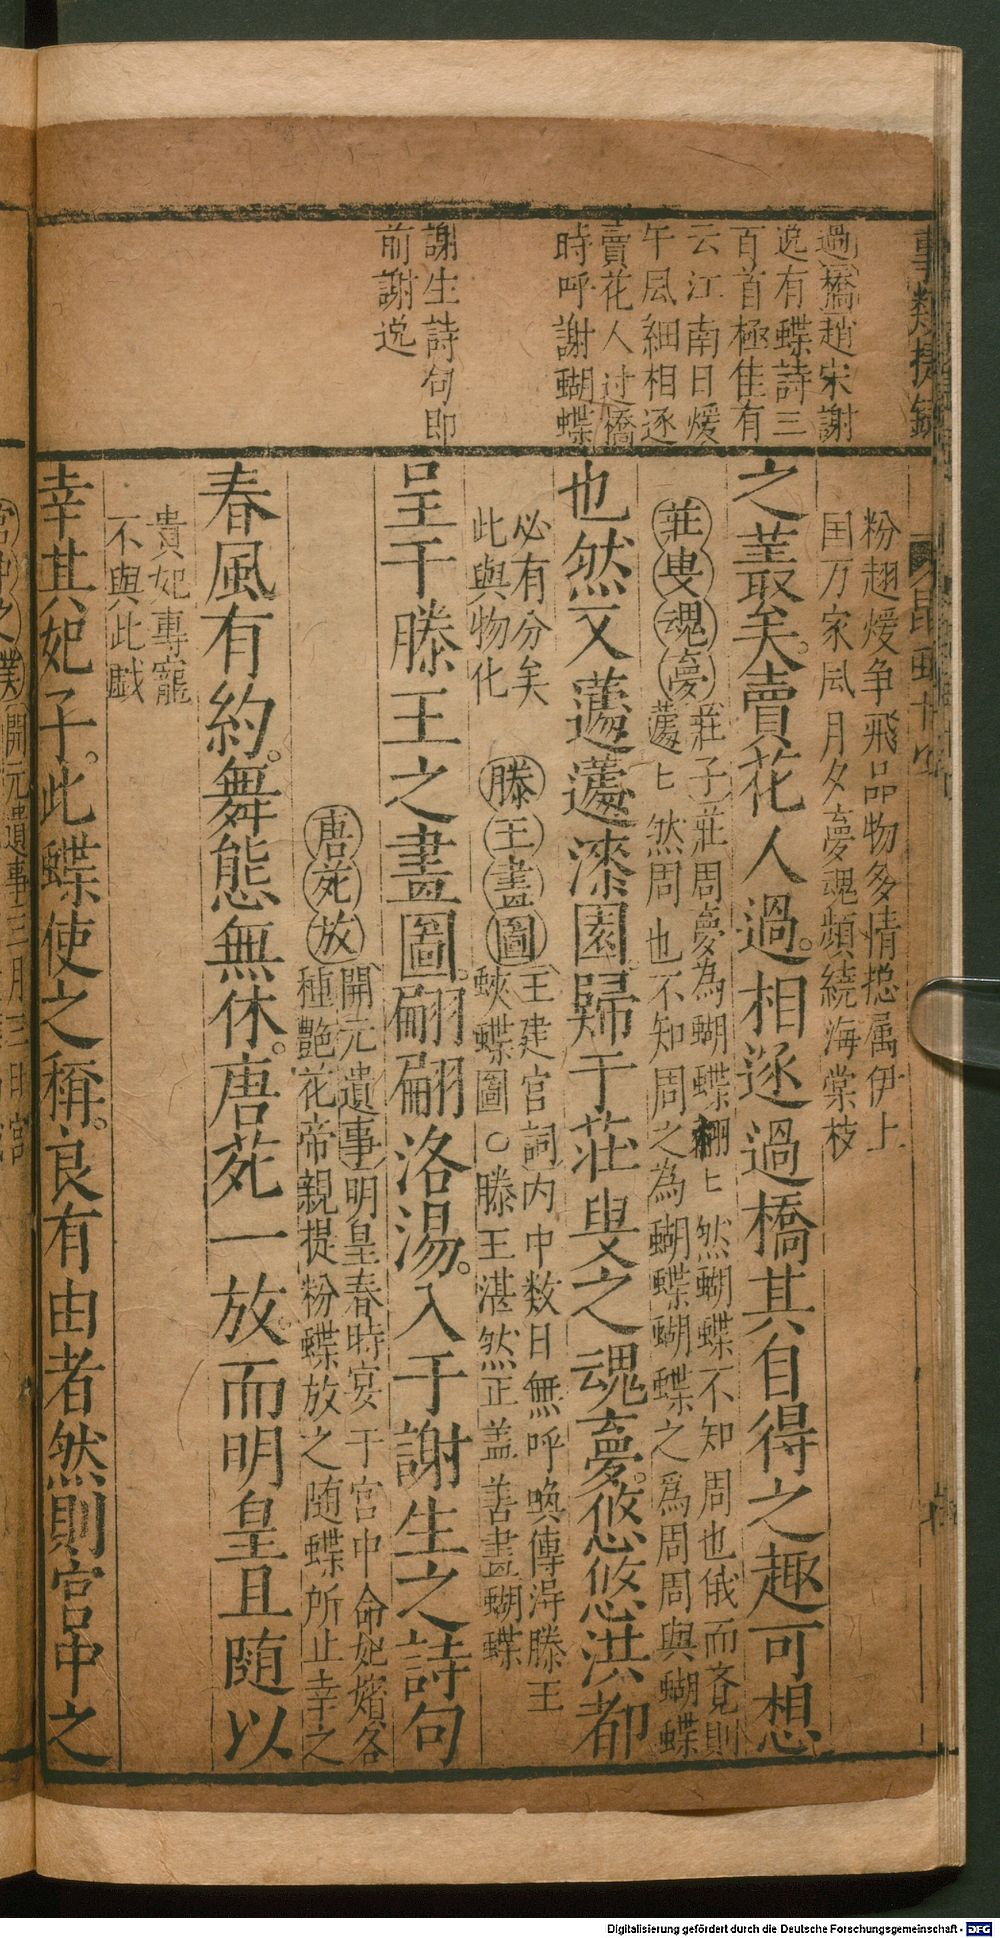 過橋趙宋謝
逸有蝶詩三
百首極佳有
云江南日煖
午風細相逐
賣花人过橋
時呼謝蝴蝶
謝生詩句即
前謝逸
粉翅煖争飛品物多情揔属伊上
国万家風月夕夢魂頻繞海棠枝
之叢矣賣花人過相逐過橋其自得之趣可想
莊叟魂夢莊子莊周夢為蝴蝶栩〻然蝴蝶不知周也俄而覔則
蘧〻然周也不知周之為蝴蝶蝴蝶之為周周與蝴蝶
也然又蘧蘧漆園歸于莊叟之魂夢悠悠洪都
必有分矣
此與物化
滕王畫圖王建宫詞内中数日無呼喚傳淂滕王
蛺蝶圖○滕王湛然正盖善畫蝴蝶
呈于滕王之畫圖翩翩洛湯入于謝生之詩句
唐苑放開元遺事明皇春時宴于宫中命妃嬪各
種艶花帝親提粉蝶放之随蝶所止幸之
春風有約舞態無休唐苑一放而明皇且随以
貴妃專寵
不與此戯
幸其妃子此蝶使之稱良有由者然則宫中之
開元遺事三月三日宫
Digitalisierung gefördert durch die Deutsche Forschungsgemeinschaft - DFG